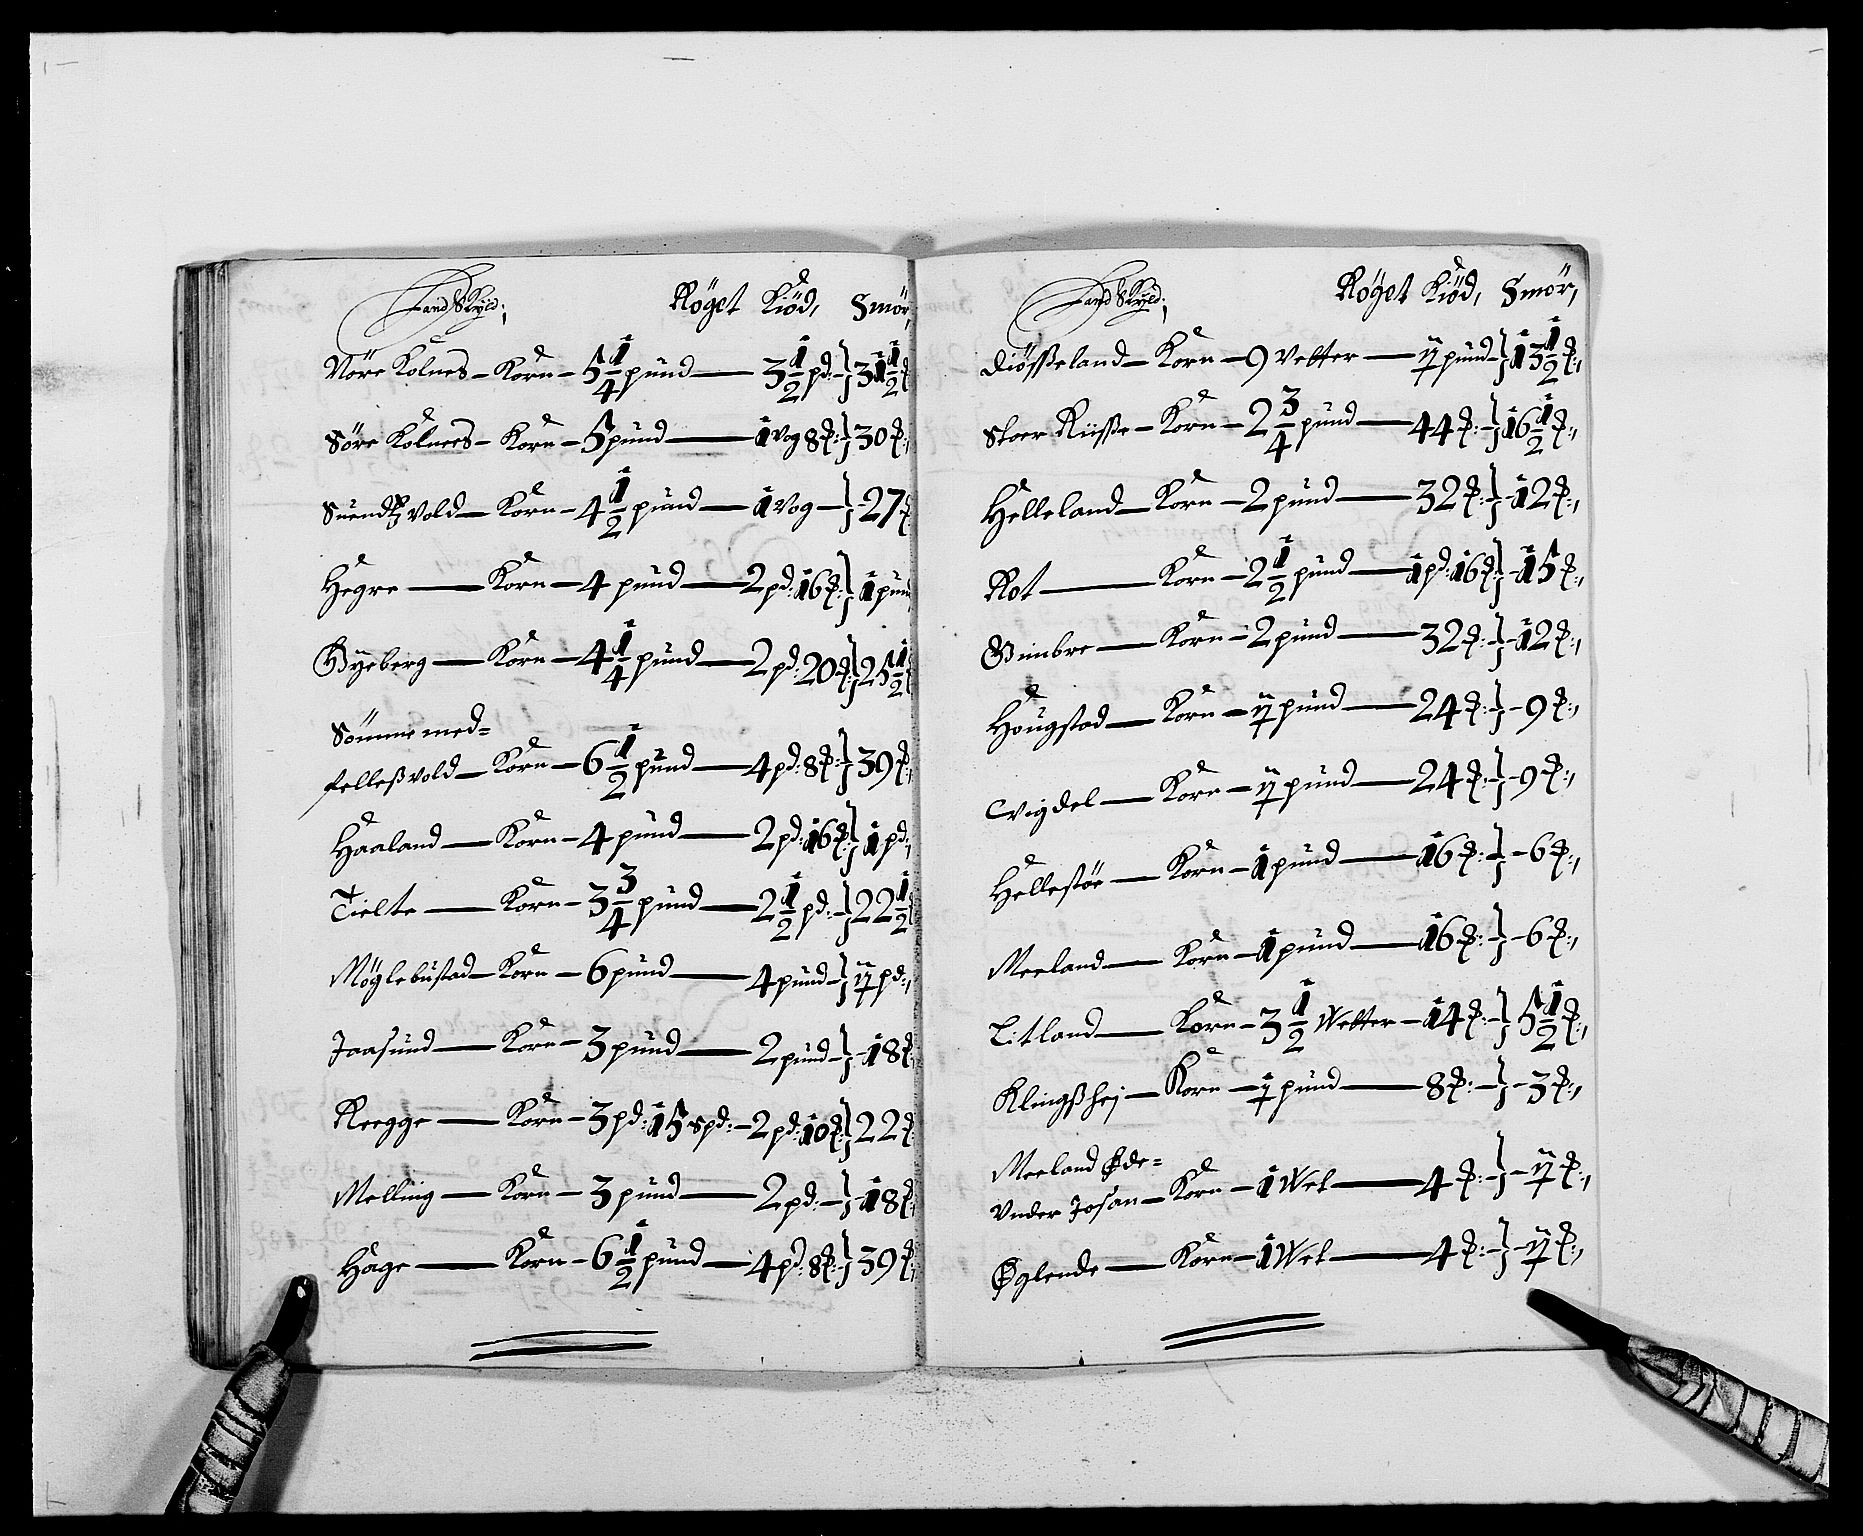 Land Skyld; Röget Kiöd, Smör,
Nöre Kolnes — Korn — 5 1/4 pund — 3 1/2 pd:—} 31 1/2 ℔
Söre Kolnees — Korn — 5 pund — 1 Vog 8 ℔:} 30 ℔:,
Suendß Vold — Korn — 4 1/2 pund — 1 Vog —} -27 ℔
Hegre — Korn — 4 pund — 2 pd: 16 ℔:} 1 pund
Myeberg — Korn — 4 1/4 pund — 2 pd: 20 ℔:} 25 1/2
Sömme med=
felleß vold — Korn — 6 1/2 pund — 4 pd: 8 ℔:} 39 ℔:,
Haaland — Korn — 4 pund — 2 pd: 16 ℔:} 1 pd:,
Tielte — Korn — 3 3/4 pund — 2 1/2 pd:—} 22 1/2
Möglebustad — Korn — 6 pund — 4 pund —} ij pd:,
Jaasund — Korn — 3 pund — 2 pund —} -18 ℔:
Reegge — Korn — 3 pd: 15 spd: — 2 pd: 10 ℔} 22 ℔
Melling — Korn — 3 pund — 2 pd:—} -18 ℔:
Hage — Korn — 6 1/2 pund — 4 pd: 8 ℔:} 39 ℔:
Land Skyld; Röget Kiöd, Smör,
Diösßeland — Korn — 9 Vetter — ij pund —} 13 1/2 ℔:,
Stoer Riisße — Korn — 2 3/4 pund — 44 ℔:—} 16 1/2 ℔:,
Helleland — Korn — 2 pund — 32 ℔:—} -12 ℔:,
Rot — Korn — 2 1/2 pund — 1 pd: 16 ℔:} -15 ℔:,
Gimbre — Korn — 2 pund — 32 ℔:—} -12 ℔:,
Hougstad — Korn — ij pund — 24 ℔:—} -9 ℔:,
Wigdel — Korn — ij pund — 24 ℔:—} -9 ℔:,
Hellestöe — Korn — 1 pund — 16 ℔:—} -6 ℔:,
Meeland — Korn — 1 pund — 16 ℔:—} -6 ℔:,
Litland — Korn — 3 1/2 Wetter — 14 ℔:—} 5 1/2 ℔:,
Klingßhej — Korn — ½ pund — 8 ℔:—} -3 ℔:,
Meeland Øde=
Vnder Josan — Korn — 1 Wet — 4 ℔:—} -ij ℔:,
Øglende — Korn — 1 Wet — 4 ℔:—} -ij ℔:,